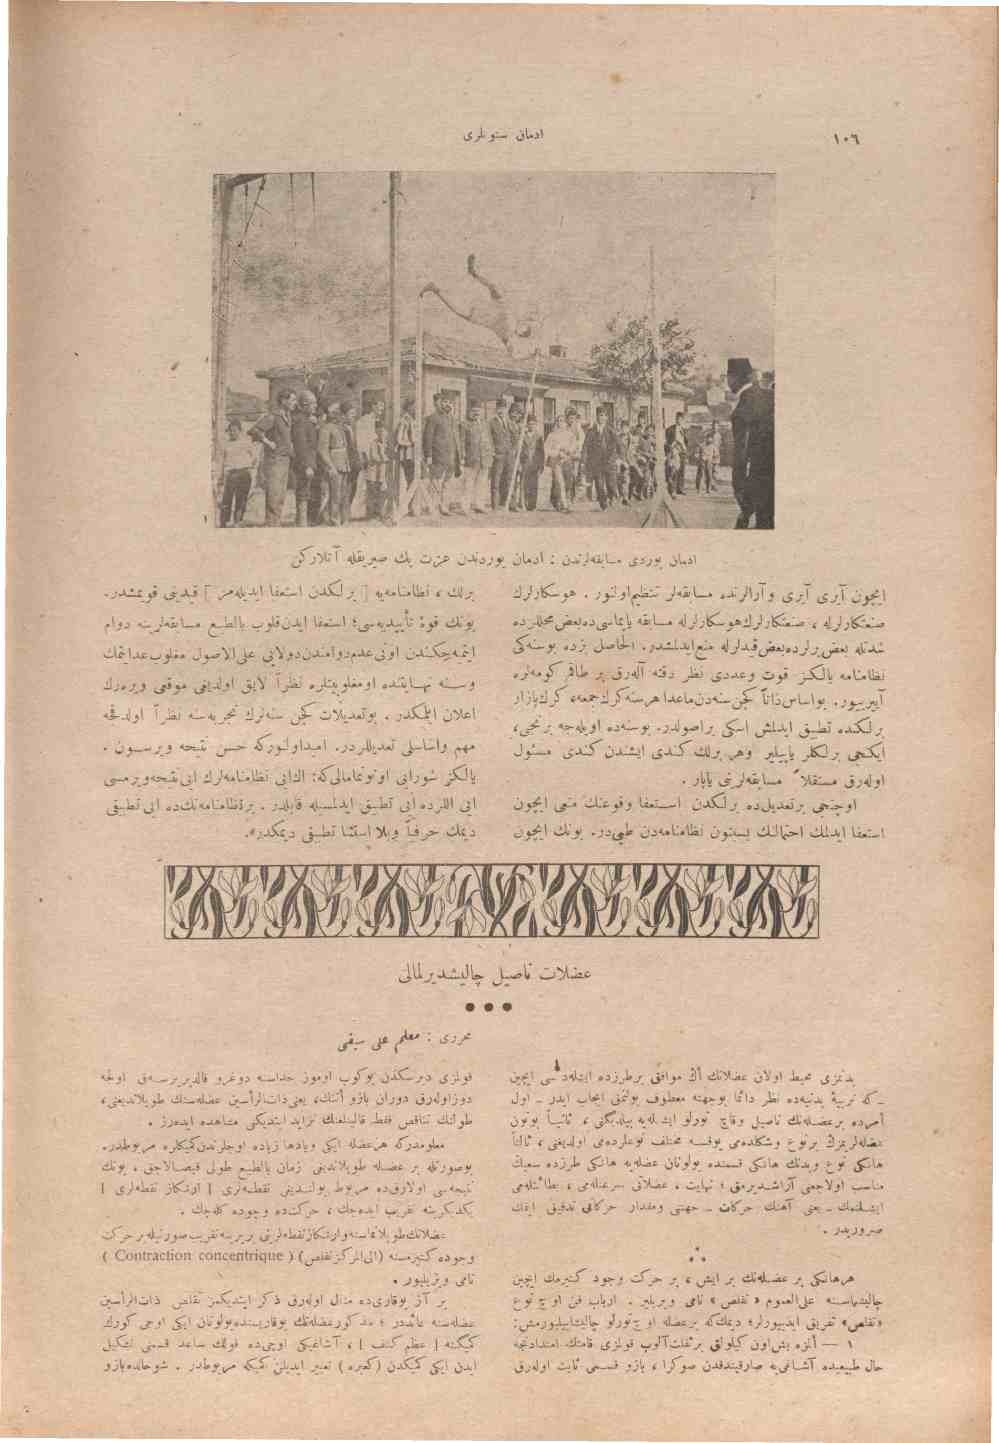 ١٠٦
ادمان سنونلری
ادمان یوردی مسابقه‌لرندن : ادمان یوردندن عزت بك صیریقله آتلارکن
ایچون آیری آیری و آرالرنده مسابقه‌لر تنظیم اولنور . هوسکارلرك
صنعتکارلرله ، صنعتکارلرك هوسکارلرله مسابقه یاپماسی ده بعض محللرده
شدتله بعض یرلرده بعض قیدلرله منع ایدلمشدر. الحاصل بزده بوسنه‌کی
نظامنامه یالکز قوت وعددی نظر دقته آله‌رق بر طاقم کومه‌لره
آییریور. بواساس ذاتاً کچن سنه‌دن ماعدا هر سنه کرك جمعه، کرك پازار
برلکنده تطبیق ایدلمش اسکی براصولدر. بوسنه‌ده اویله‌جه برنجی،
ایکنجی برلکلر یاپیلیر وهر برلك کندی ایشندن کندی مسئول
اوله‌رق مستقلاً مسابقه‌لرینی یاپار .
اوچنجی برتعدیل‌ده برلکدن استعفا وقوعنك منعی ایچون
استعفا ایدلمك احتمالنك بسبتون نظامنامه‌دن طیی‌در. بونك ایچون
برلك ، نظامنامه‌یه [ برلکدن استعفا ایدیله‌مز ] قیدینی قویمشدر.
بونك قوهٔ تأییدیه‌سی؛ استعفا ایدن قلوب بالطبع مسابقه‌لرینه دوام
ایتمیه‌جکندن اونی عدم دوامندن دولایی علی الاصول مغلوب عد اتمك
وسنه نهایتنده اومغلوبیتلره نظراً لایق اولدیغی موقعی ویره‌رك
اعلان ایتمکدر . بوتعدیلات کچن سنه‌لرك تجربه‌سنه نظراً اولدقجه
مهم واساسلی تعدیللردر. امید اولنورکه حسن نتیجه ویرسون .
یالکز شورایی اونوتمامالی که: اك‌ایی نظامنامه‌لرك ایی نتیجه ویرمسی
ایی اللرده ایی تطبیق ایدلمسیله قابلدر . برنظامنامه‌نك‌ده ایی تطبیقی
دیمك حرفیاً وبلا استثنا تطبیقی دیمکدر».
عضلات ناصیل چالیشدیرلمالی
محرری : معلم علی سیفی
بدنمزی محیط اولان عضلاتك اك موافق برطرزده ایشله‌دلمسی ایچین
ـ که تربیهٔ بدنیه‌ده نظر دائما بوجهته معطوف بولنمغی ایجاب ایدر ـ اول
امرده برعضله‌نك ناصیل وقاچ تورلو ایشله‌یه بیله‌جکنی ، ثانیاً بوتون
عضله‌لریمزك برنوع وشکلده‌می یوقسه مختلف نوعلرده‌می اولدیغنی ، ثالثاً
هانکی نوع وبدنك هانکی قسمنده بولونان عضله‌یه هانکی طرزده سعینك
مناسب اولاجغنی آراشدیرمق ؛ نهایت ، عضلاتی سرعتله‌می ، بطائتله‌می
ایشلتمك ـ یعنی آهنك حرکات ـ جهتنی ومقدار حرکاتی تدقیق ایتمك
ضروریدر .
هرهانکی بر عضله‌نك بر ایش ، بر حرکت وجود کتیرمك ایچین
چالیشماسنه علی‌العموم « تقلص » نامی ویریلیر . ارباب فن اوچ نوع
«تقلص» تفریق ایدییورلر؛ دیمك‌که برعضله اوچ تورلو چالیشابیلیورمش:
١ — المزه بش‌اون کیلولق برثقلت آلوب قولمزی قامتك امتدادنجه
حال طبیعیده آشاغی‌یه صارقیتدقدن صوکرا ، بازو قسمی ثابت اوله‌رق
قولمزی دیرسکدن بوکوب اوموز حذاسنه دوغرو قالدیریرسه‌ق اوکجه
دوز اوله‌رق دوران بازو أتنك، یعنی ذات‌الرأسین عضله‌سنك طوپلاندیغنی،
طولنك تناقص فقط قالینلغنك تزاید ایتدیکنی مشاهده ایده‌رز .
معلومدرکه هرعضله ایکی ویادها زیاده اوجلرندن کمیکلره مربوطدر.
بوصورتله بر عضله طوپلاندیغی زمان بالطبع طولی قیصالاجق ، بونك
نتیجه‌سی اولارق‌ده مربوط بولندیغی نقطه‌لری [ ارتکاز نقطه‌لری ]
یکدیکرینه تقریب ایده‌جك ، حرکت‌ده وجوده کله‌جك .
عضلاتك طوپلانماسنه وارتکاز نقطه‌لرینی بربرینه تقریب صورتیله بر حرکت
وجوده کتیرمسنه (الی‌المرکز تقلص) ( Contraction concentrique )
نامی ویریلییور .
بر آز یوقاری‌ده مثال اوله‌رق ذکر ایتدیکمز تقلص ذات‌الرأسین
عضله‌سنه عائددر ؛ مذکور عضله‌نك یوقاریسنده بولونان ایکی اوجی کورك
کمیکنه [ عظم کتف ] ، آشاغیکی اوجی‌ده قولك ساعد قسمنی تشکیل
ایدن ایکی کمیکدن (کعبره ) تعبیر ایدیلن کمیکه مربوطدر . شوحالده بازو